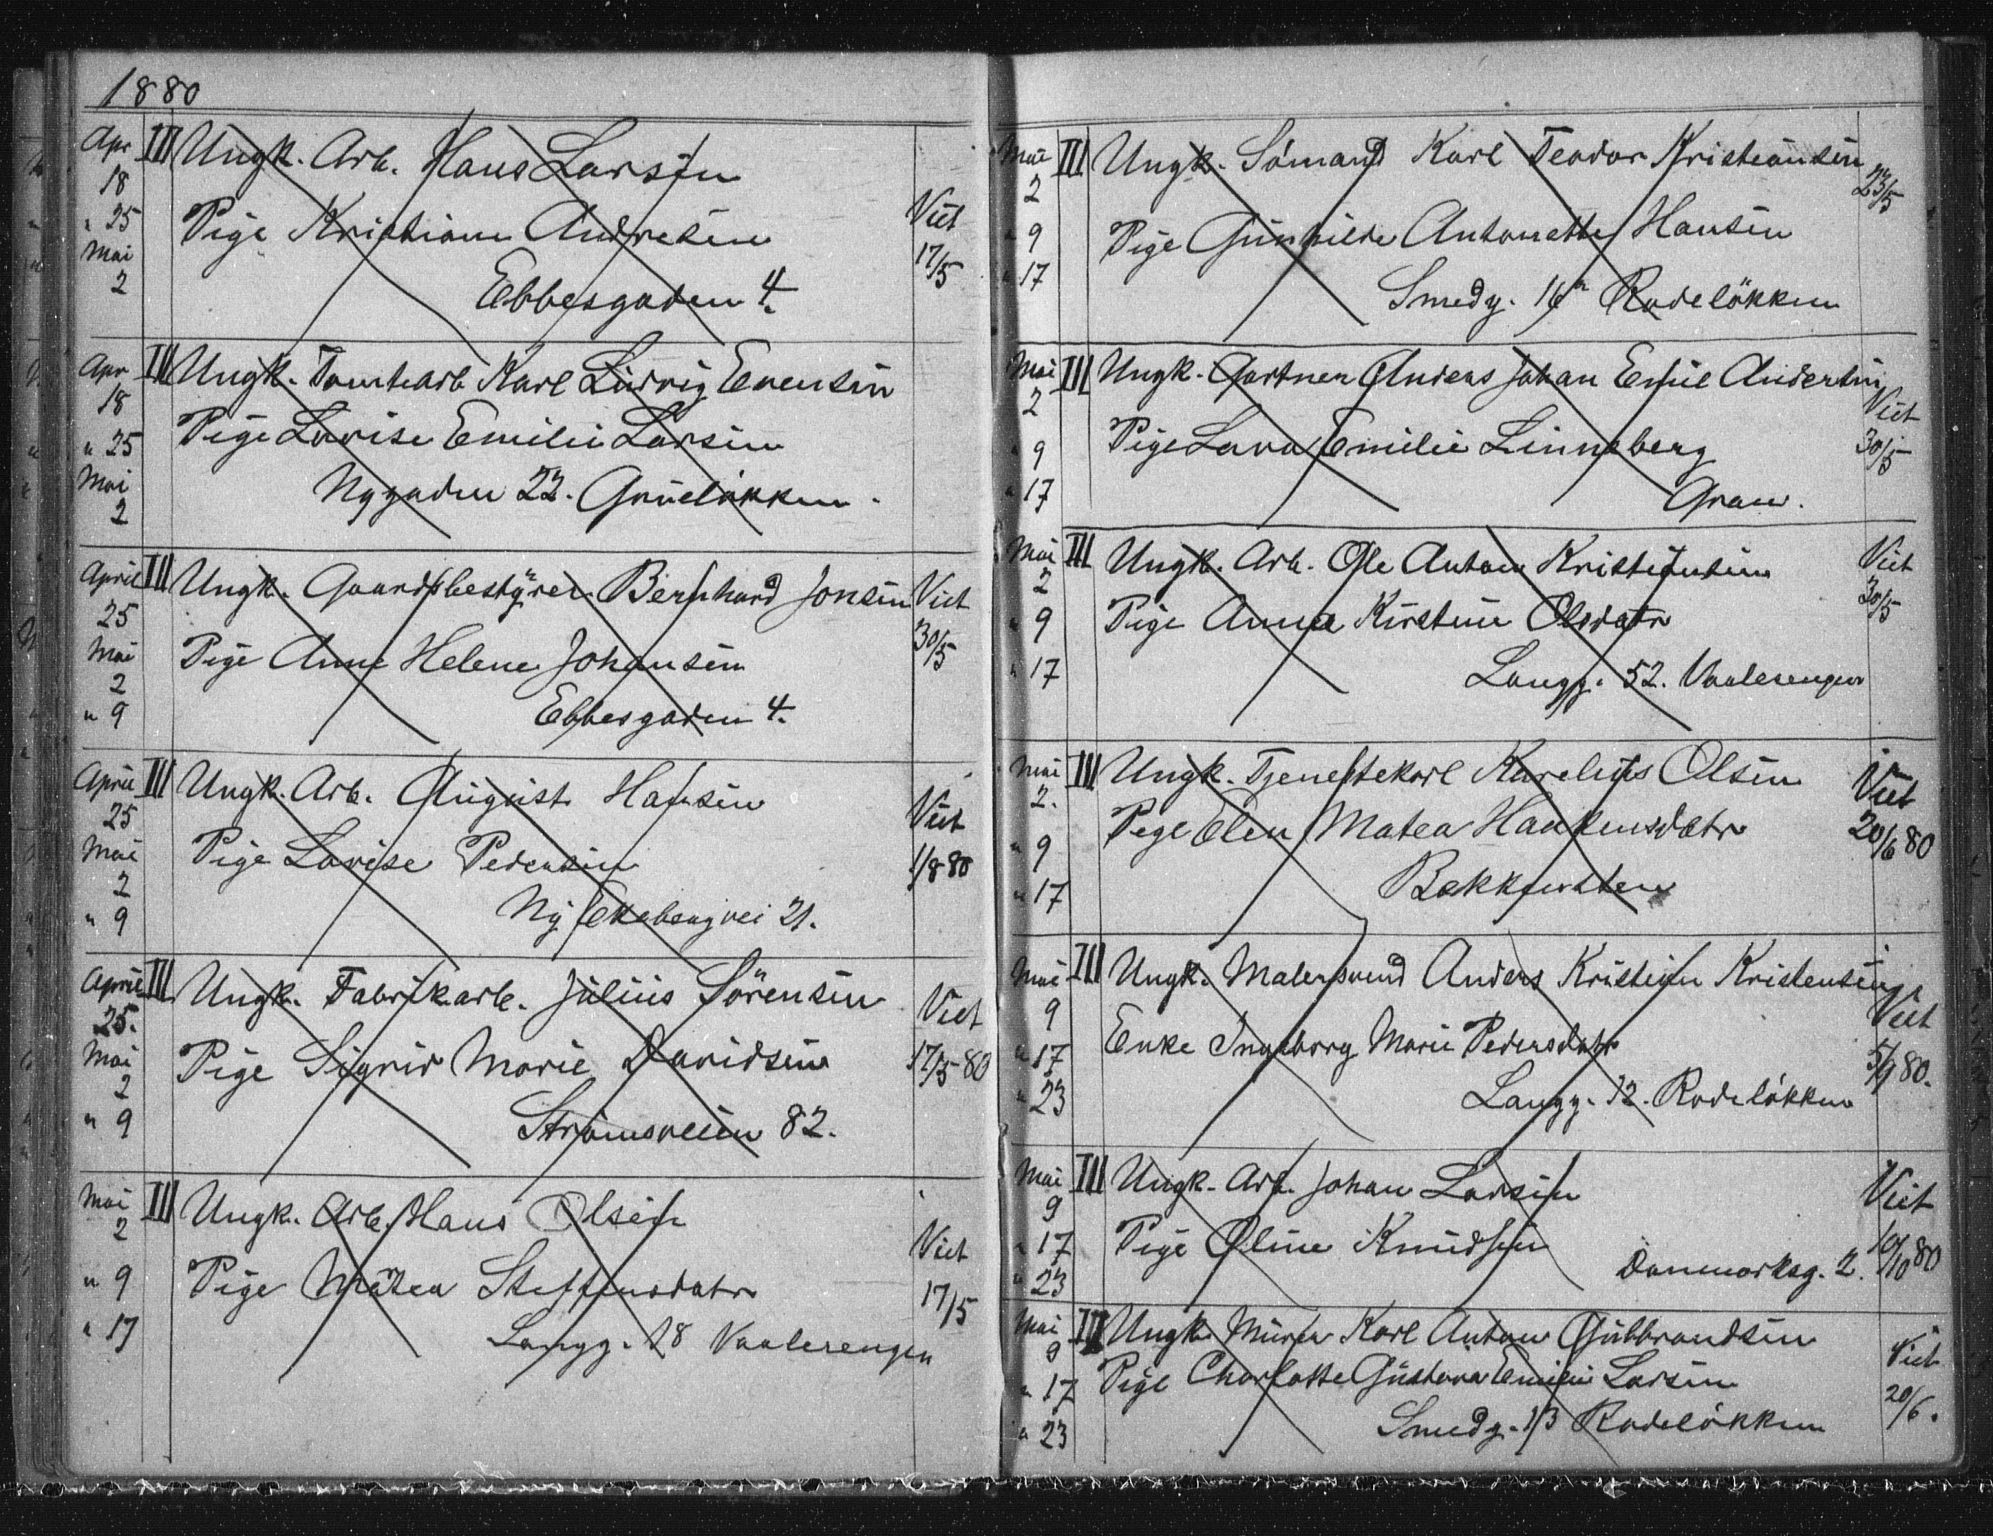 1880
Apr 18 III Ungk. Arb. Hans Larsen
" 25 Pige Kristiane Andresen Viet 17/5
Mai 2 Ebbesgaden 4.
Apr 18 III Ungk. Tomtearb Karl Ludvig Evensen
" 25 Pige Lovise Emilie Larsen
Mai 2 Nygaden 22. Grüneløkken.
April 25 III Ungk. Gaardsbestyrer Bernhard Jonsen Viet
Mai 2 Pige Anne Helene Johansen 30/5
" 9 Ebbesgaden 4.
April 25 III Ungk. Arb. August Hansen Viet
Mai 2 Pige Lovise Pedersen 1/8 80
" 9 Ny Ekebergvei 21.
April 25. III Ungk. Fabrikarb. Julius Sörensen Viet
Mai 2 Pige Sigrid Marie Davidsen 17/5 80
" 9 Strømsveien 82.
Mai 2 III Ungk. Arb. Hans Olsen
" 9 Pige Matea Steffensdatr Viet
" 17 Langg. 18 Vaalerengen 17/5
Mai 2 III Ungk. Sømand Karl Teodor Kristiansen 23/5
" 9 Pige Gunhilde Antonette Hansen
" 17 Smedg. 16 Rodeløkken
Mai 2 III Ungk. Gartner Anders Johan Emil Andersen Viet
" 9 Pige Lava Emilie Linneberg 30/5
" 17 Gran.
Mai 2 III Ungk. Arb. Ole Anton Kristiansen Viet
" 9 Pige Anna Kirstine Olsdatr 30/5
" 17 Langg. 52. Vaalerengen
Mai 2. III Ungk. Tjenestekarl Karelius Olsen Viet
" 9 Pige Elen Matea Haakensdatr 20/6 80
" 17 Bækkensten
Mai 9 III Ungk. Malersvend Anders Kristian Kristensen Viet
" 17 Enke Ingeborg Marie Pedersdatr 5/9 80.
" 23 Langg. 12. Rodeløkken
Mai 9 III Ungk. Arb. Johan Larsen Viet
" 17 Pige Oline Knudsen 10/10 80
" 23 Danmarksg. 2.
Mai 9 III Ungk. Murer Karl Anton Gulbrandsen
" 17 Pige Charlotte Gustava Emilie Larsen Viet
" 23 Smedg. 13 Rodeløkken 20/6.